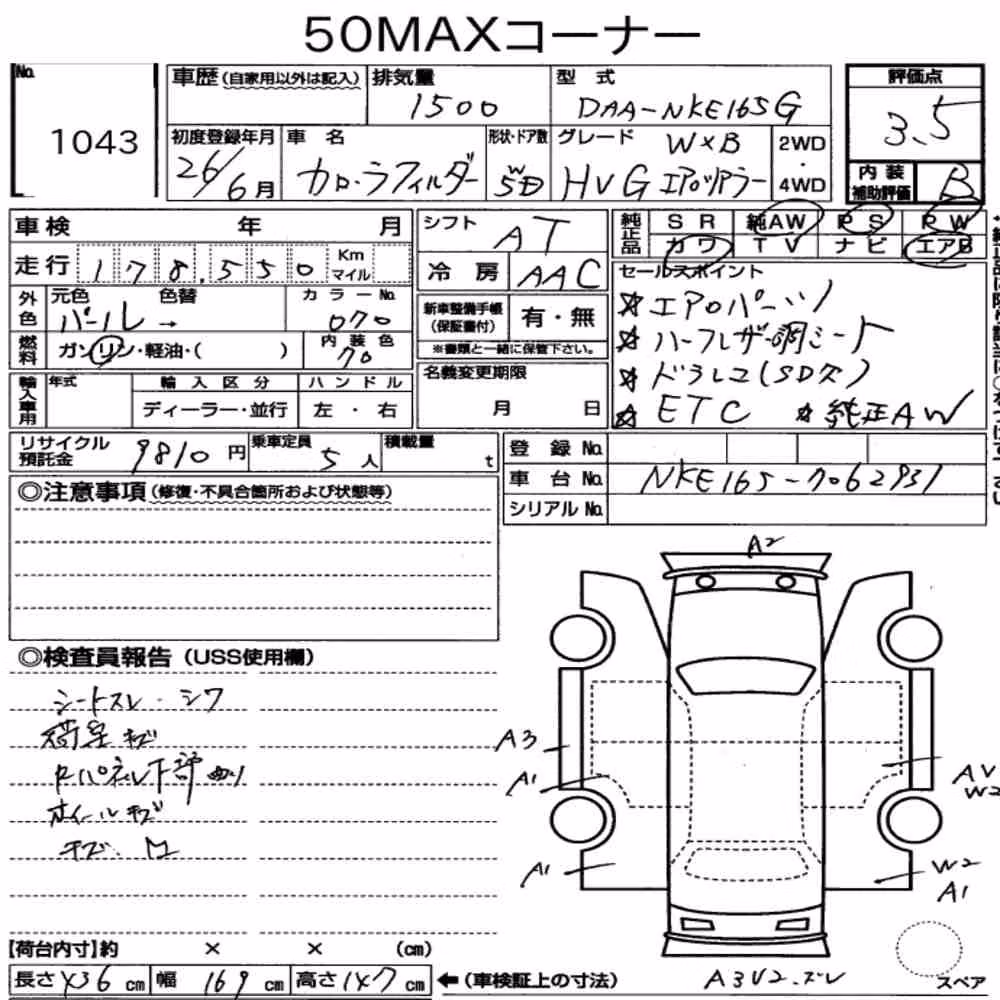 50MAXコーナー
No.
1043
車歴(自家用以外は記入)
排気量
1500
型 式
DAA-NKE165G
評価点
3.5
初度登録年月
26/6月
車 名
カローラフィルダー
形状・ドア数
W
5D
グレード
W×B
HV G エアロツアラー
2WD
・
4WD
内 装
補助評価
B
車検 年 月
シフト
AT
純正品
S R 純AW P S P W
カワ T V ナビ エアB
走行 178,550 Km マイル
冷 房
AAC
セールスポイント
☆エアロパーツ
☆ハーフレザー調シート
☆ドラレコ(SD欠)
☆ETC ☆純正AW
外色
元色 色替
パール→
カラーNo.
070
新車整備手帳
(保証書付)
有・無
※書類と一緒に保管下さい。
燃料
ガソリン・軽油・( )
内 装 色
70
名義変更期限
月 日
輸入車用
年式
輸 入 区 分
ディーラー・並行
ハ ン ド ル
左 ・ 右
リサイクル
預託金
9810 円
乗車定員
5 人
積載量
t
登 録 No.
車 台 No.
NKE165-7062931
シリアル No.
◎注意事項(修復・不具合箇所および状態等)
◎検査員報告(USS使用欄)
シートスレ・シワ
荷室キズ
Rパネル下部曲り
ホイールキズ
キズ、凹
A2
A3
A1
A1
AV
W2
W2
A1
A3V2.ズレ
スペア
【荷台内寸】約 × × (cm)
長さ436cm 幅 169cm 高さ147cm ←(車検証上の寸法)